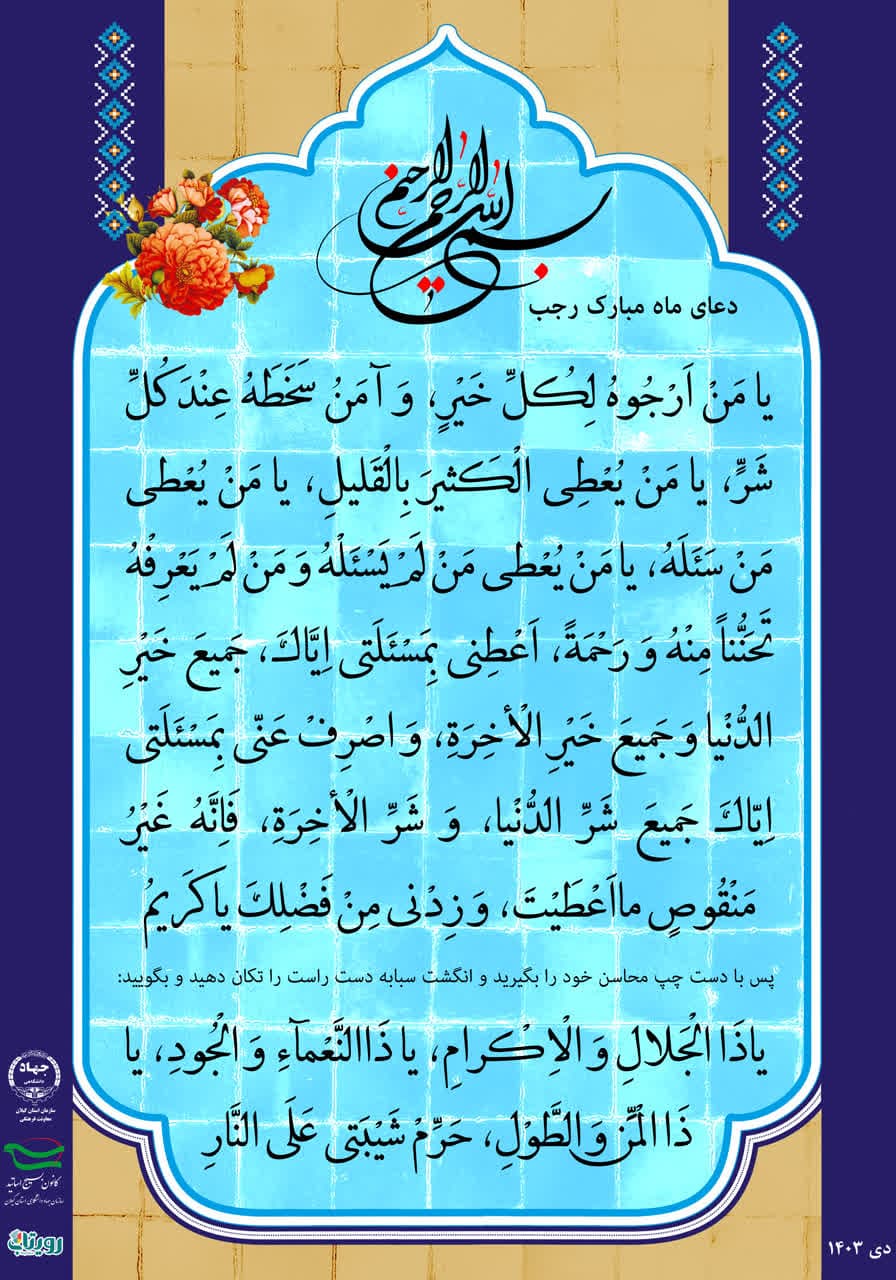 بسم الله الرحمن الرحیم
دعای ماه مبارک رجب
یا مَنْ اَرْجُوهُ لِکُلِّ خَیْرٍ، وَ آمَنُ سَخَطَهُ عِنْدَ کُلِّ
شَرٍّ، یا مَنْ یُعْطِی الْکَثیرَ بِالْقَلیلِ، یا مَنْ یُعْطی
مَنْ سَئَلَهُ، یا مَنْ یُعْطی مَنْ لَمْ یَسْئَلْهُ وَ مَنْ لَمْ یَعْرِفْهُ
تَحَنُّناً مِنْهُ وَ رَحْمَةً، اَعْطِنی بِمَسْئَلَتی اِیَّاكَ، جَمیعَ خَیْرِ
الدُّنْیا وَ جَمیعَ خَیْرِ الْأخِرَةِ، وَ اصْرِفْ عَنّی بِمَسْئَلَتی
اِیّاكَ جَمیعَ شَرِّ الدُّنْیا، وَ شَرِّ الْأخِرَةِ، فَاِنَّهُ غَیْرُ
مَنْقُوصٍ مااَعْطَیْتَ، وَ زِدْنی مِنْ فَضْلِكَ یا کَریمُ
پس با دست چپ محاسن خود را بگیرید و انگشت سبابه دست راست را تکان دهید و بگویید:
یاذَا الْجَلالِ وَ الْاِکْرامِ، یا ذَاالنَّعْمآءِ وَ الْجُودِ، یا
ذَا الْمَنِّ وَ الطَّوْلِ، حَرِّمْ شَیْبَتی عَلَی النَّارِ
جهاد
دانشگاهی
سازمان استان گیلان
معاونت فرهنگی
کانون بسیج اساتید
سازمان جهاد دانشگاهی استان گیلان
رویتاب
دی ۱۴۰۳